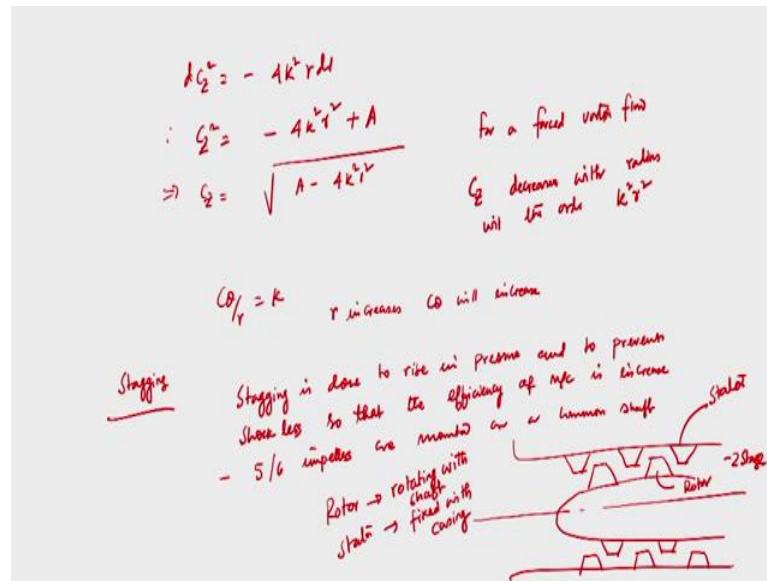 dC_z² = - 4k² r dr
∴ C_z² = - 4k²r² + A
⇒ C_z = √(A - 4k²r²)
for a forced vortex flow
C_z decreases with radius
will the order k²r²
Cθ/r = k r increases Cθ will increase
Stagging
Stagging is done to rise in pressure and to prevent
shock loss so that the efficiency of m/c is increase
- 5/6 impellers are mounted on a common shaft
Rotor → rotating with
shaft
Stator → fixed with
casing
Stator
-2 Stage
Rotor